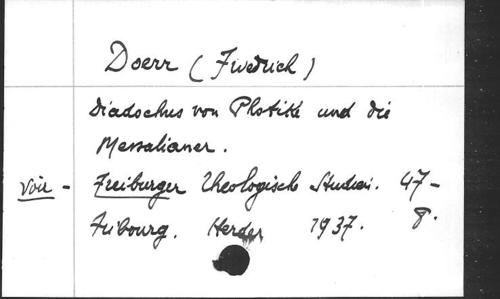 Doerr (Friedrich)
Diadochus von Photike und die
Messalianer.
Voir - Freiburger Theologische Studien. 47 -
Fribourg. Herder 1937. 8.